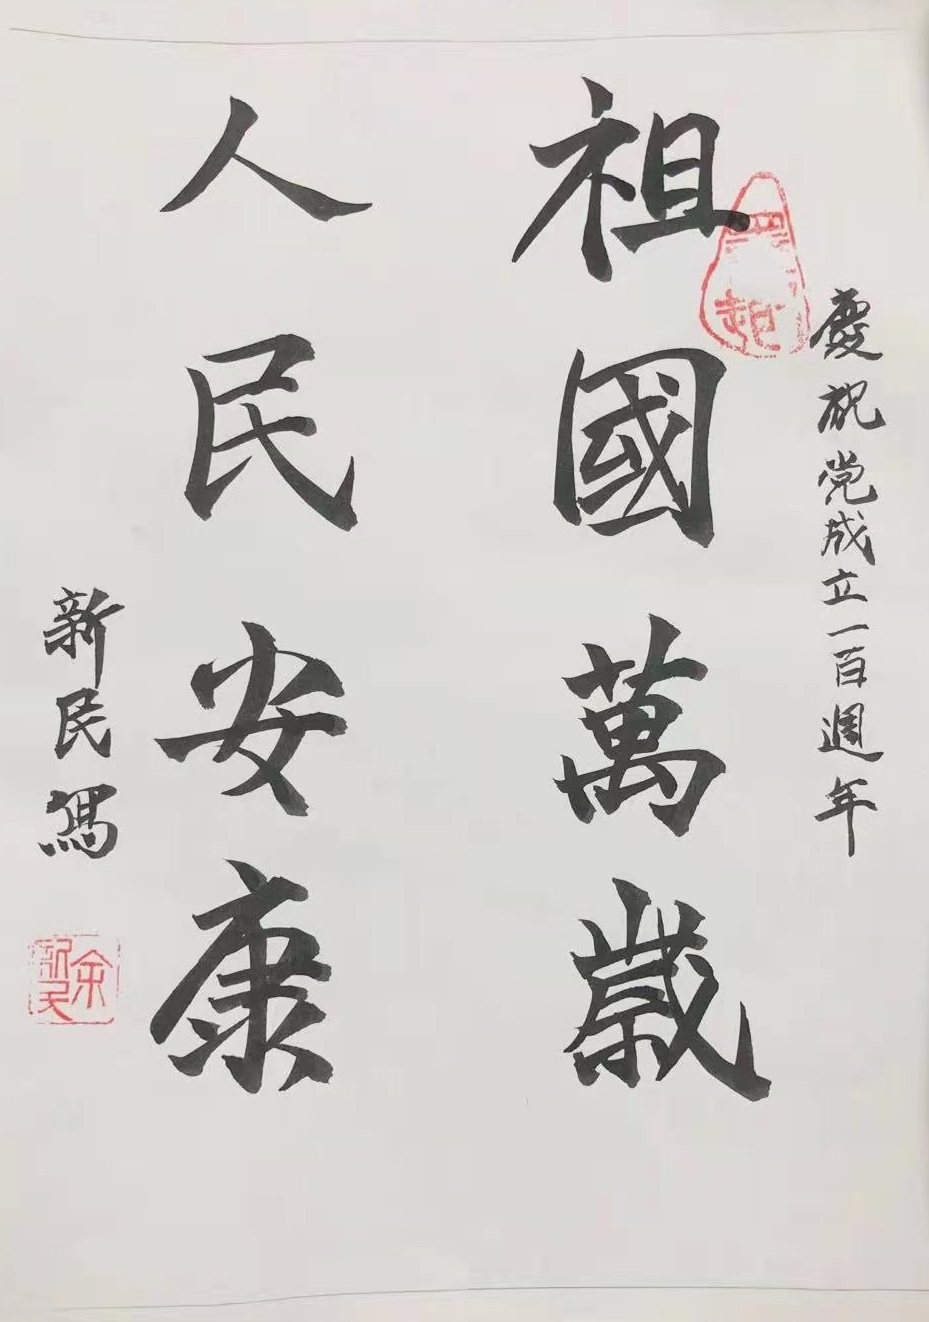 慶祝党成立一百週年
祖國萬歲
人民安康
新民寫
余新民